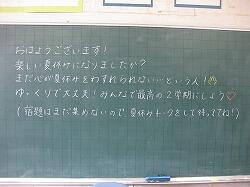 おはようございます!
楽しい夏休みになりましたか?
まだ心が夏休みをわすれられない…という人!
ゆっくりで大丈夫!みんなで最高の2学期にしよう♡
(宿題はまだ集めないので、夏休みトークをして待っててね!)